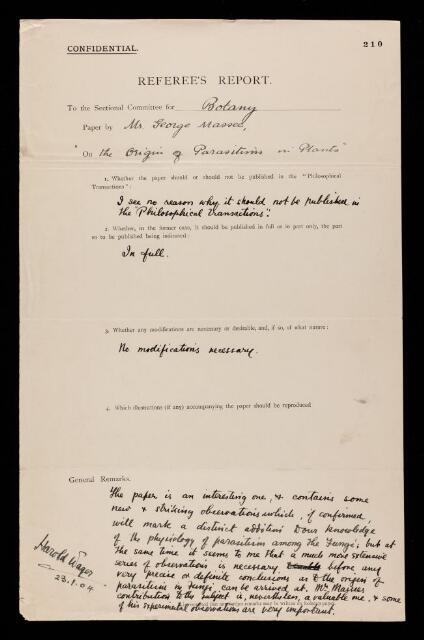 CONFIDENTIAL.
210
REFEREE'S REPORT.
To the Sectional Committee for Botany
Paper by Mr. George Massee,
"On the Origin of Parasitism in Plants"
1. Whether the paper should or should not be published in the "Philosophical
Transactions":
I see no reason why it should not be published in
the "Philosophical Transactions".
2. Whether, in the former case, it should be published in full or in part only, the part
so to be published being indicated:
In full.
3. Whether any modifications are necessary or desirable, and, if so, of what nature:
No modifications necessary.
4. Which illustrations (if any) accompanying the paper should be reproduced
General Remarks.
The paper is an interesting one, & contains some
new & striking observations which, if confirmed,
will mark a distinct addition to our knowledge
of the physiology of parasitism among the Fungi; but at
the same time it seems to me that a much more extensive
series of observations is necessary before any
very precise or definite conclusions as to the origin of
parasitism in Fungi can be arrived at. Mr. Massee's
contribution to the subject is, nevertheless, a valuable one, & some
of his experimental observations are very important.
Harold Wager
23.1.04